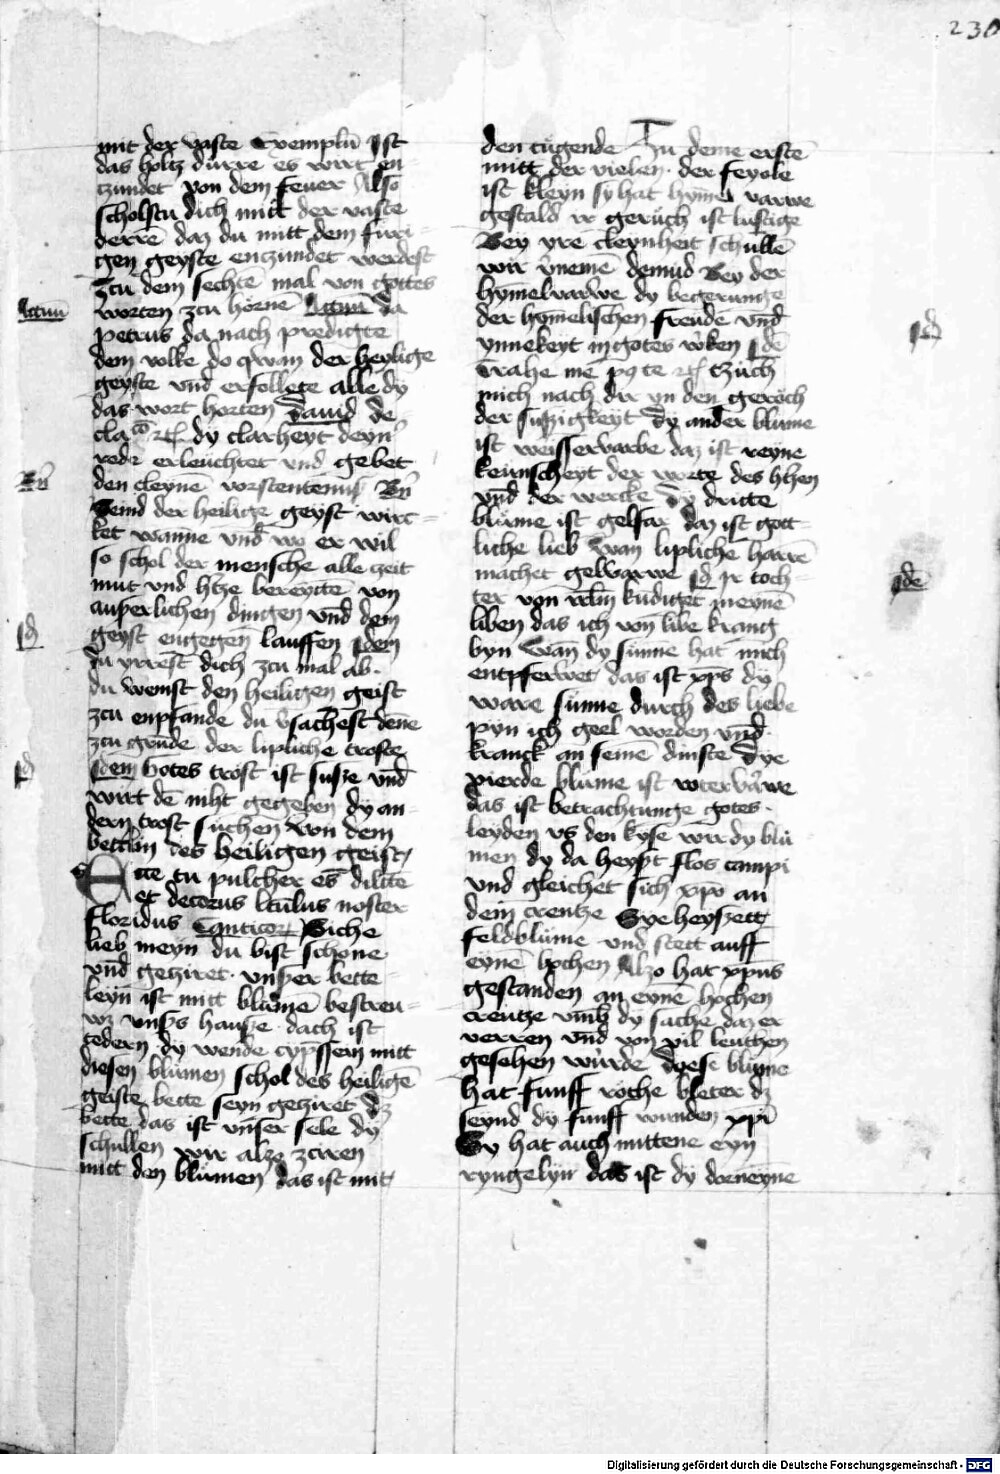 230
mit der vaste Exemplū Ist
das holtz dürre es wirt en-
tzundet von dem feuer Also
scholstu dich mitt der vaste
derrē daz du mitt dem furi-
gen geyste entzundet werdest
Zcu dem sechtē mal von gottes
worten zcu hörnē Actuū da
Actuū
petrus da nach predigte
dem volke do qwam der heylige
geyste vnd erfollete alle dy
das wort horten Dauid de-
dy clarheyt deynʼ
rede erleuchtet vnd gebet
den cleynē vorstentenuß Bn̄
Bn̄
Seind der heilige geyst wirc-
ket wanne vnd wo er wil
so schol der mensche alle zeit
mut vnd hʼtze bereytē von
außerlichen dingen vnd dem
geyst engegen lauffen Jdem
Jd
du yrrest dich zcu mal ab.
du wenst den heiligen geist
zcu enpfande du vʼsachest denne
zcu grūde der lipliche troste
Jdem Gotes trost ist susze vnd
Jd
wirt dē niht gegeben dy an-
dern trost suchen Von dem
bettlin des heiligen geist
Ecce tu pulcher es dilcte
et decorus lctulus noster
floridus Canticor Siche
lieb meyn du bist schone
vnd geziret. vnßer bette-
leyn ist mitt blumē bestreu-
wz vnßs hauße dach ist
cedern dy wende cypssem mitt
diesen blumen schol des heiligē
geiste bette seyn geziret dz
bette das ist vnser sele dy
schullen wir alzo zciren
mitt den blumen das ist mit
den tugende Zu deme erstē
mitt der violen. der feyole
ist kleyn sy hat hymel varwe
gestald ir geruch ist lustige
Bey yre cleynheit schullē
wir vʼnemē demud Bey der
hymelvarwe dy begerunge
der hymelischen freude vnd
ynnekeyt in gotes wken Jdē
Jd
Trahe me pꝰ te tzuch
mich nach dir yn den geroch
der sußigkeyt Dy ander blume
ist weisservarbe daz ist reyne
keunscheyt der worte des hʼhen
vnd der wercke Dy dritte
blume ist gelfar daz ist gott-
liche lieb Wan lipliche harrē
machet gelwarwe Jd Ir toch-
Jdē
ter von irlm kudiget meynē
liben das ich von libe krang
byn Wan dy sunne hat mich
entpferwet das ist xp̄s dy
ware sunne durch des liebe
pyn ich geel worden vnd
kranck an seinē dinste Dye
vierde blume ist rotervarwe
das ist betrachtunge gotes.
leyden vs den kyse wir dy blu-
men dy da heyst flos campi
vnd gleichet sich xpo an
dem creutze Sye heyszett
feldblume vnd stett auff
eynē hochen Alzo hat xpūs
gestanden an eynē hochen
creutze vmb dy sache daz er
verren vnd von vil leuthen
gesehen wurde Dyese blume
hat funff röthe bleter dz
seynd dy funff wunden xpī
Sy hat auch mittene eyn
ryngelyn das ist dy dorneyne
Digitalisierung gefördert durch die Deutsche Forschungsgemeinschaft - DFG